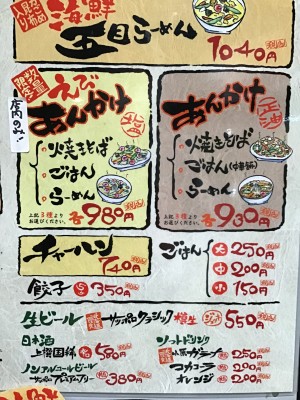 海鮮
五目らーめん
1040円
数量限定
店内のみ!!
えび
あんかけ
焼きそば
ごはん
らーめん
上記3種より
お選びください。
各980円
あんかけ
正油
焼きそば
ごはん(中華飯)
らーめん
上記3種より
お選びください。
各930円
チャーハン
740円
餃子 5コ 350円
ごはん
大 250円
中 200円
小 150円
生ビール サッポロクラシック 樽生 550円
日本酒
上撰国稀 580円
ノンアルコールビール
サッポロプレミアムアルコールフリー 380円
ソフトドリンク
小原ガラナ 250円
コカコーラ 200円
オレンジ 200円